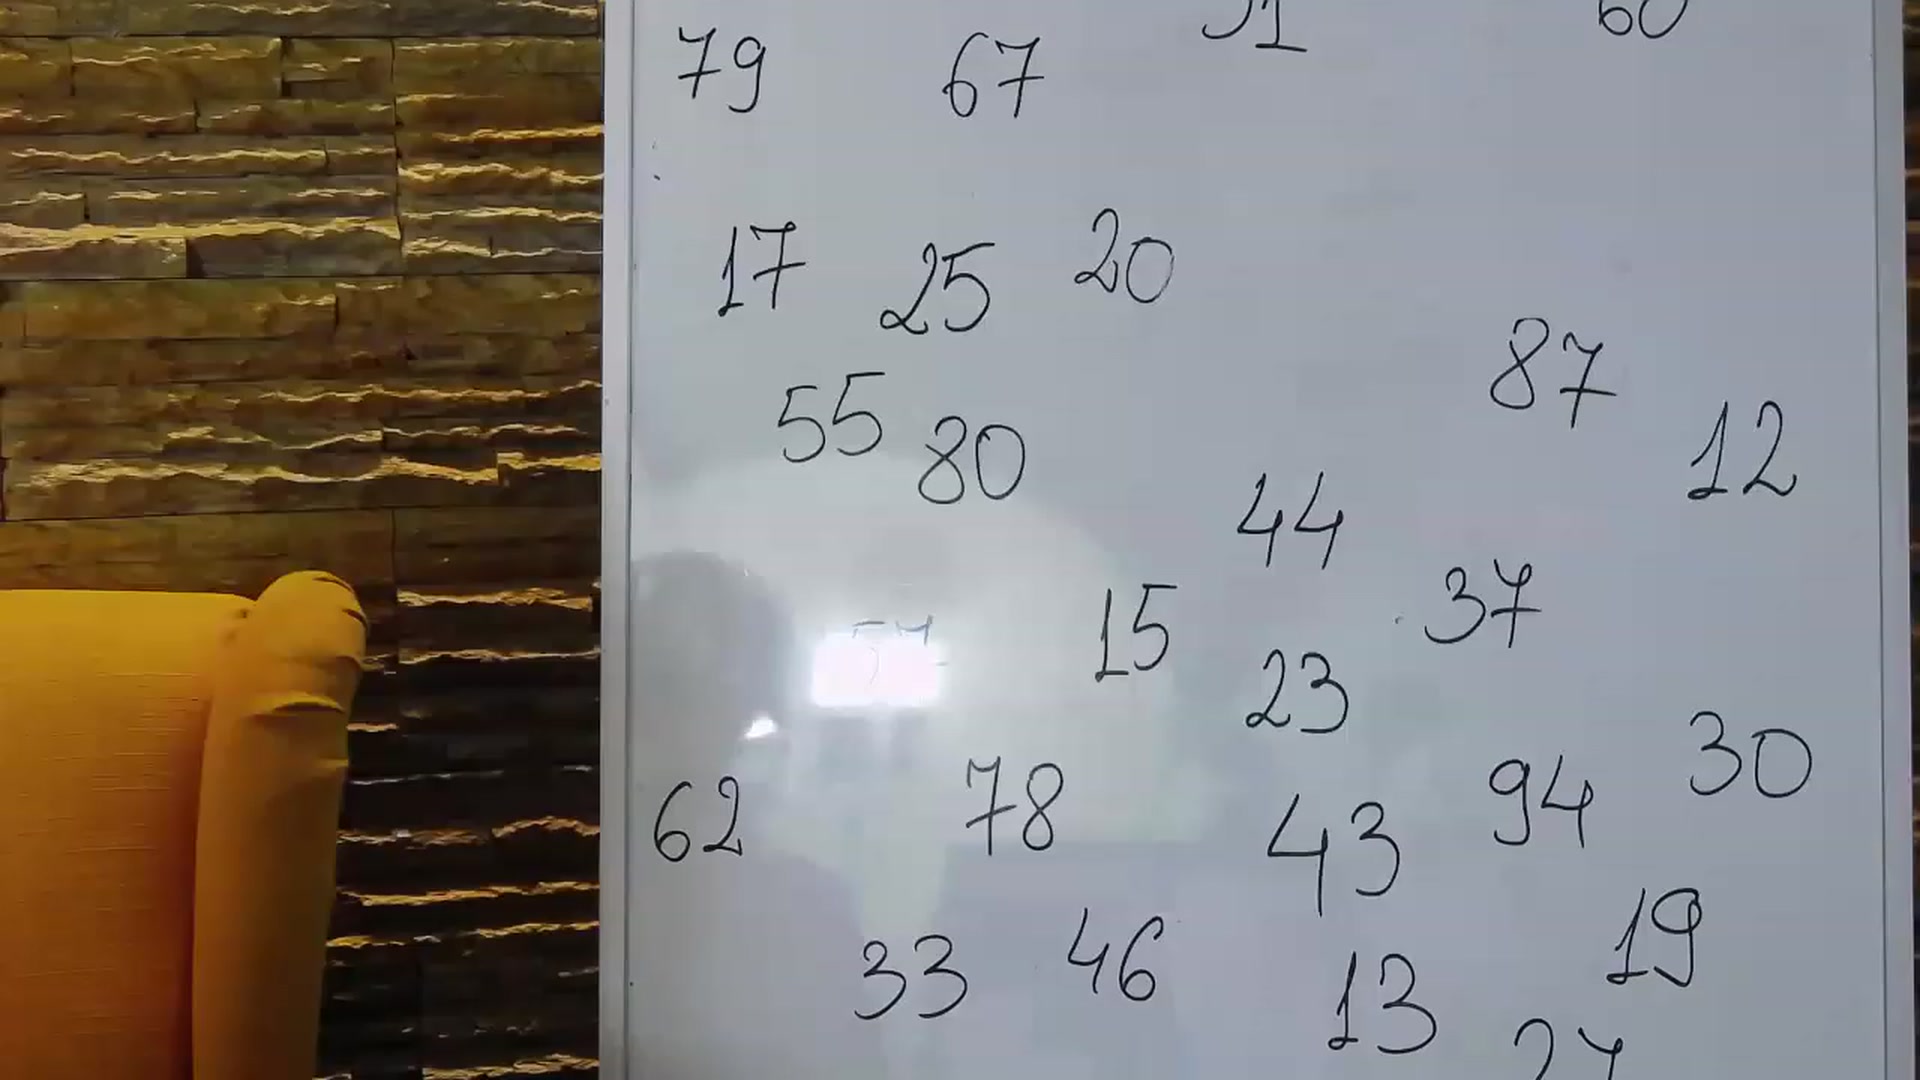 79 67
17 25 20
87
55 80
12
44
37
15
23
30
62 78 94
43
19
33 46
13